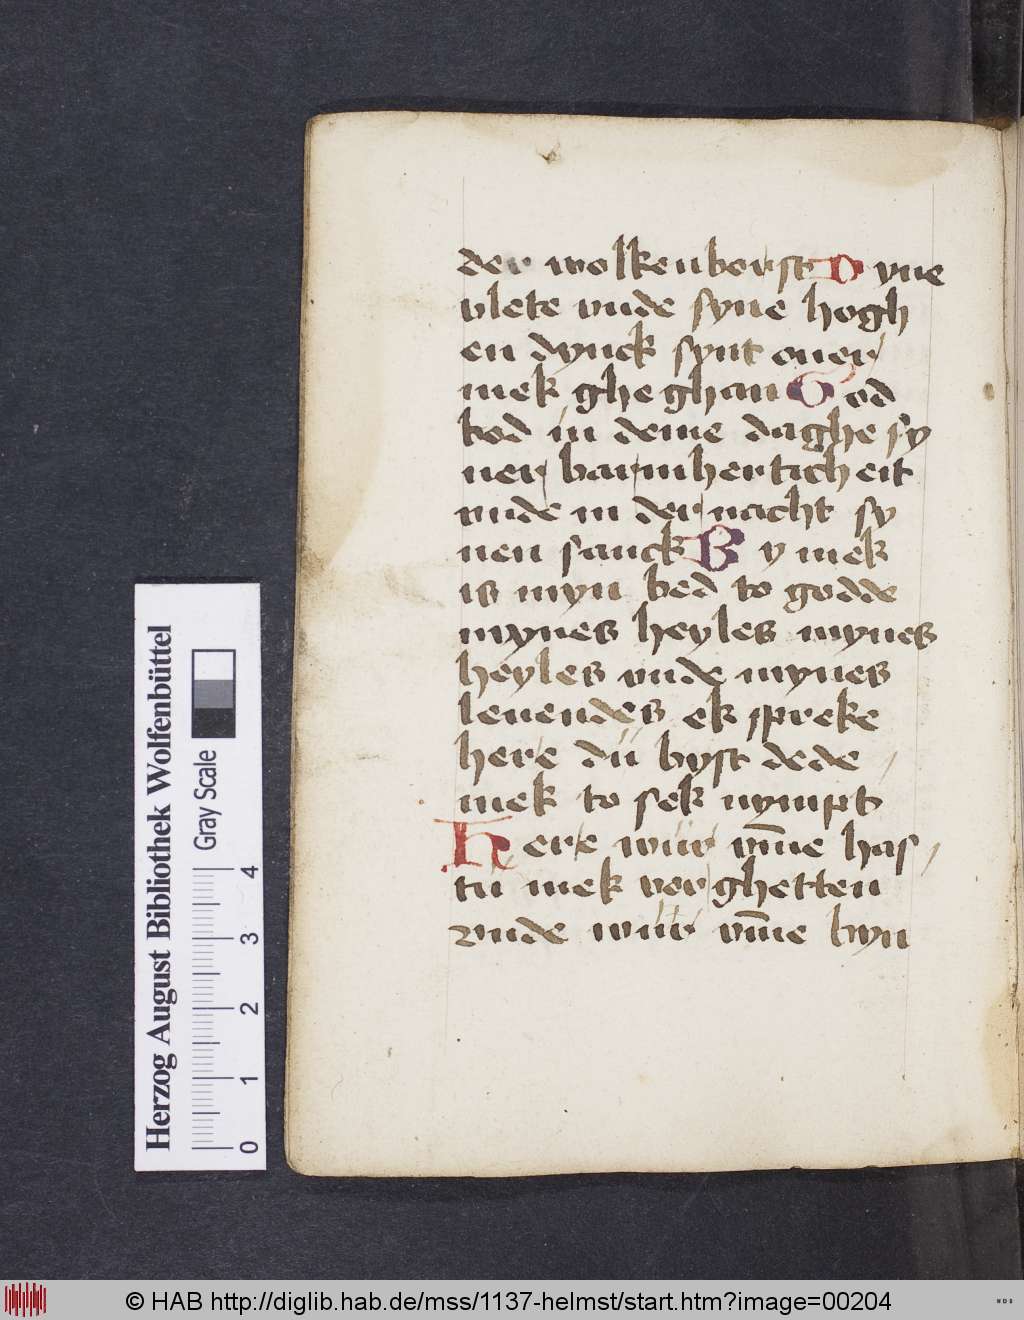 der wolkenborst Dyne
vlete vnde syne hogh
en dynck synt ouer
mek gheghan God
bod in deme daghe sy
ner barmherticheit
vnde in der nacht sy
nen sanck By mek
is myn bed to godde
mynes heyles mynes
heyles vnde mynes
leuendes ek spreke
here du byst dede
mek to sek nympt
Here wur vm̄e has
tu mek vorghetten
vnde wur vm̄e byn
Herzog August Bibliothek Wolfenbüttel
Gray Scale
0 1 2 3 4
© HAB http://diglib.hab.de/mss/1137-helmst/start.htm?image=00204